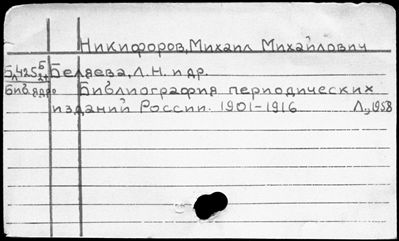 Никифоров, Михаил Михайлович
Беляева, Л.Н. и др.
Библиография периодических
изданий России. 1901-1916 Л., 1958